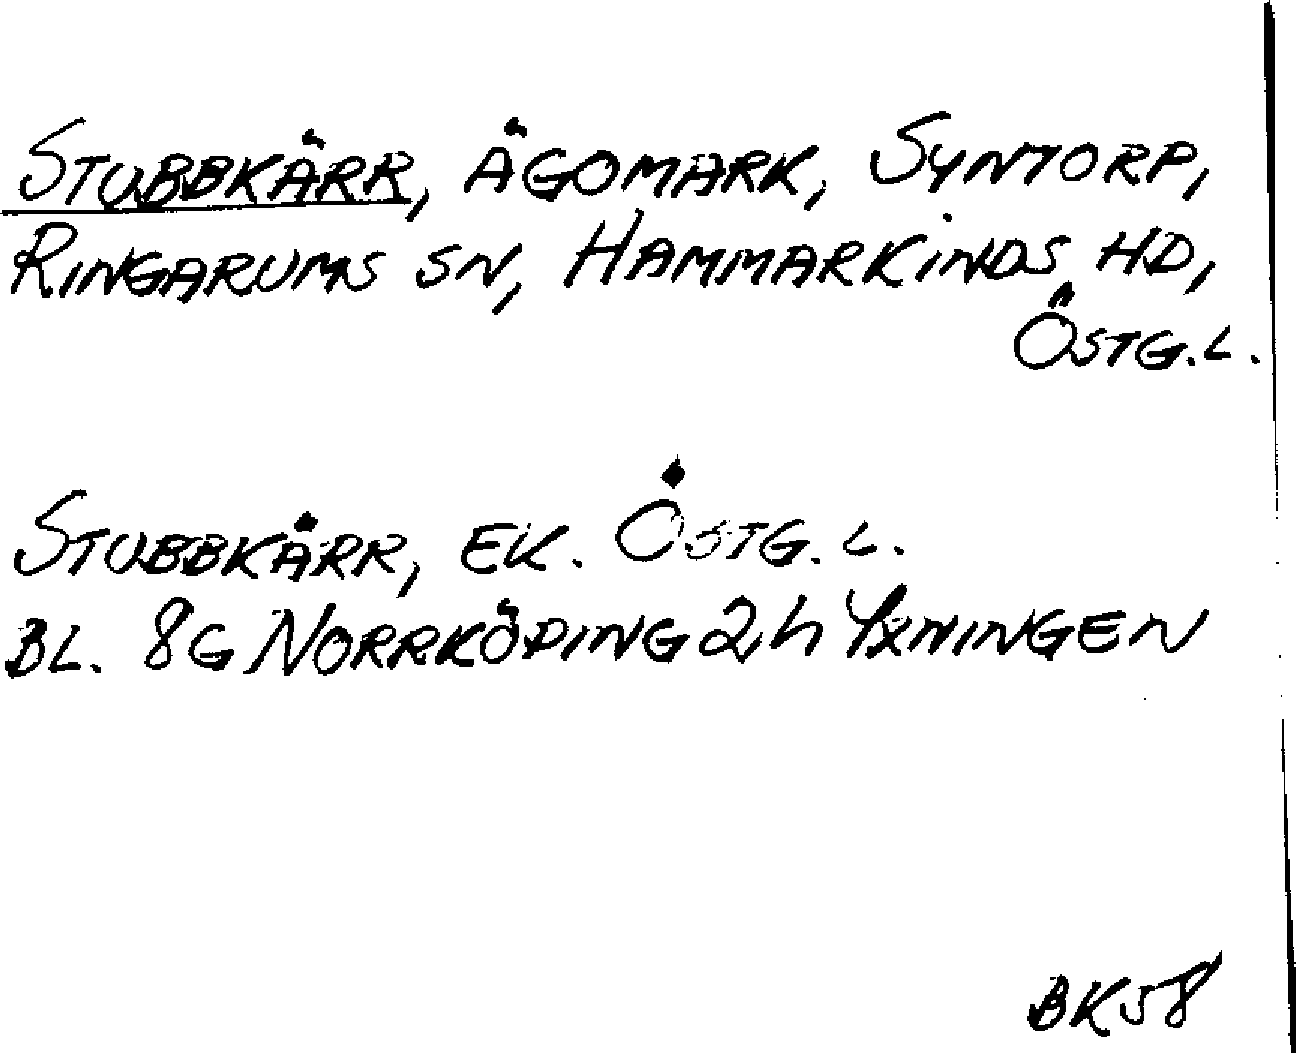 STUBBKÄRR, ÄGOMARK, SYNTORP,
RINGARUMS SN, HAMMARKINDS HD,
ÖSTG.L.
STUBBKÄRR, EK. ÖSTG.L.
BL. 8G NORRKÖPING 2h YXNINGEN
BK58